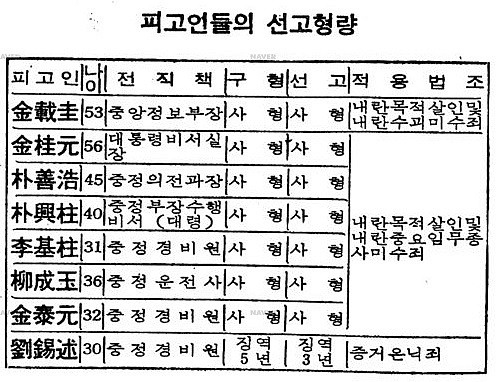 피고인들의 선고형량
피고인 나이 전직책 구형 선고 적용법조
金載圭 53 중앙정보부장 사형 사형 내란목적살인및
내란수괴미수죄
金桂元 56 대통령비서실
장 사형 사형
朴善浩 45 중정의전과장 사형 사형
朴興柱 40 중정부장수행
비서(대령) 사형 사형
李基柱 31 중정경비원 사형 사형
柳成玉 36 중정운전사 사형 사형
金泰元 32 중정경비원 사형 사형
내란목적살인및
내란중요임무종
사미수죄
劉錫述 30 중정경비원 징역
5년 징역
3년 증거은닉죄
NAVER